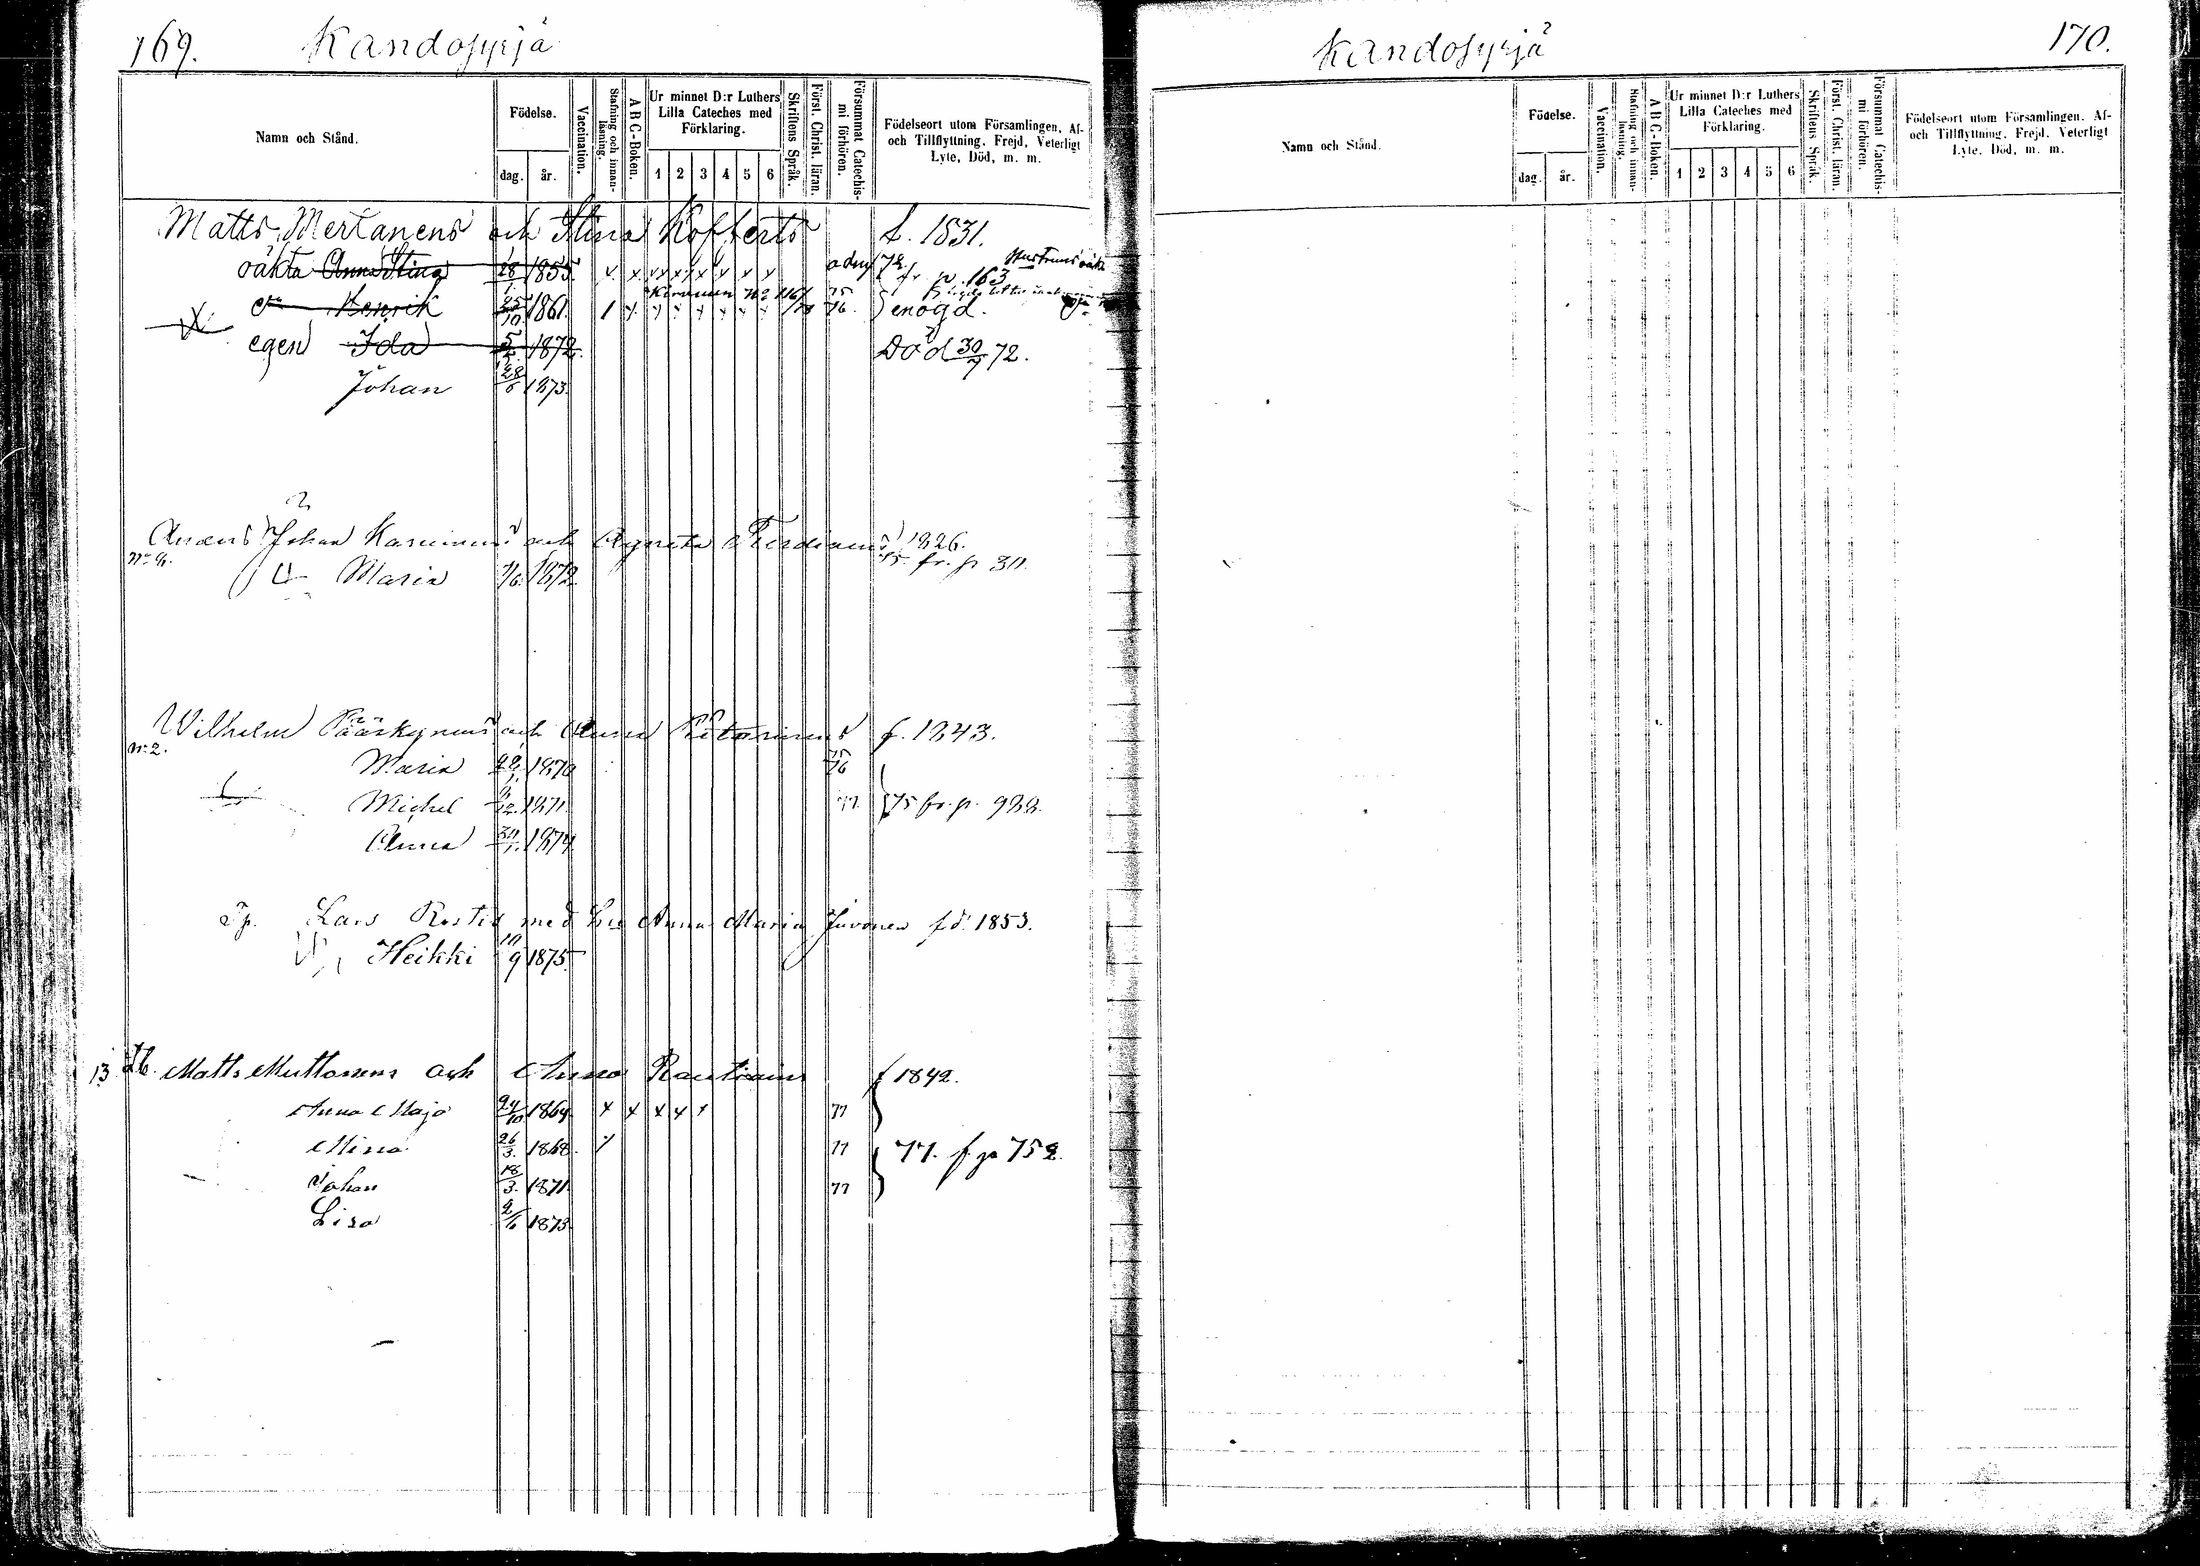 169. Kandosyrjä
Namn och Stånd.
Födelse.
dag. år.
Vaccination.
Stafning och innan-läsning.
A B C-Boken.
Ur minnet D:r Luthers Lilla Cateches med Förklaring.
1 2 3 4 5 6
Skriftens Språk.
Först. Christ. läran.
Försummat Catechis-mi förhören.
Födelseort utom Församlingen, Af- och Tillflyttning, Frejd, Veterligt Lyte, Död, m. m.
Matts Mertanens och Stina Kofferts f. 1831.
oäkta Anna Stina 1855 x x x x x x x x adm 72 fr p. 163
Henrik 25/10 1861 75 76. enögd.
egen Ida 5/5 1872. Död 30/7 72.
Johan 28/6 1873.
Anders Johan och Agneta 1826.
Maria 1872 75 fr. p 30.
Wilhelm Pääskynens och Anna f. 1843.
No 2.
Maria 1870 75 76
Michel 1871. 77 75 fr. p. 922.
Anna 1874
Lars med Anna Maria Juvonen fd. 1853.
Heikki 10/9 1875
13 Matts Muttonens och Anna Rautiains f 1842.
Anna Maja 24/10 1864 x x x x x 77
Mina 26/3. 1868. 77 77. f. p 752.
Johan 18/3. 1871. 77
Lisa 2/6 1873
Kandosyrjä 170.
Namn och Stånd.
Födelse.
dag. år.
Vaccination.
Stafning och innan-läsning.
A B C-Boken.
Ur minnet D:r Luthers Lilla Cateches med Förklaring.
1 2 3 4 5 6
Skriftens Språk.
Först. Christ. läran.
Försummat Catechis-mi förhören.
Födelseort utom Församlingen. Af- och Tillflyttning, Frejd, Veterligt Lyte, Död, m. m.